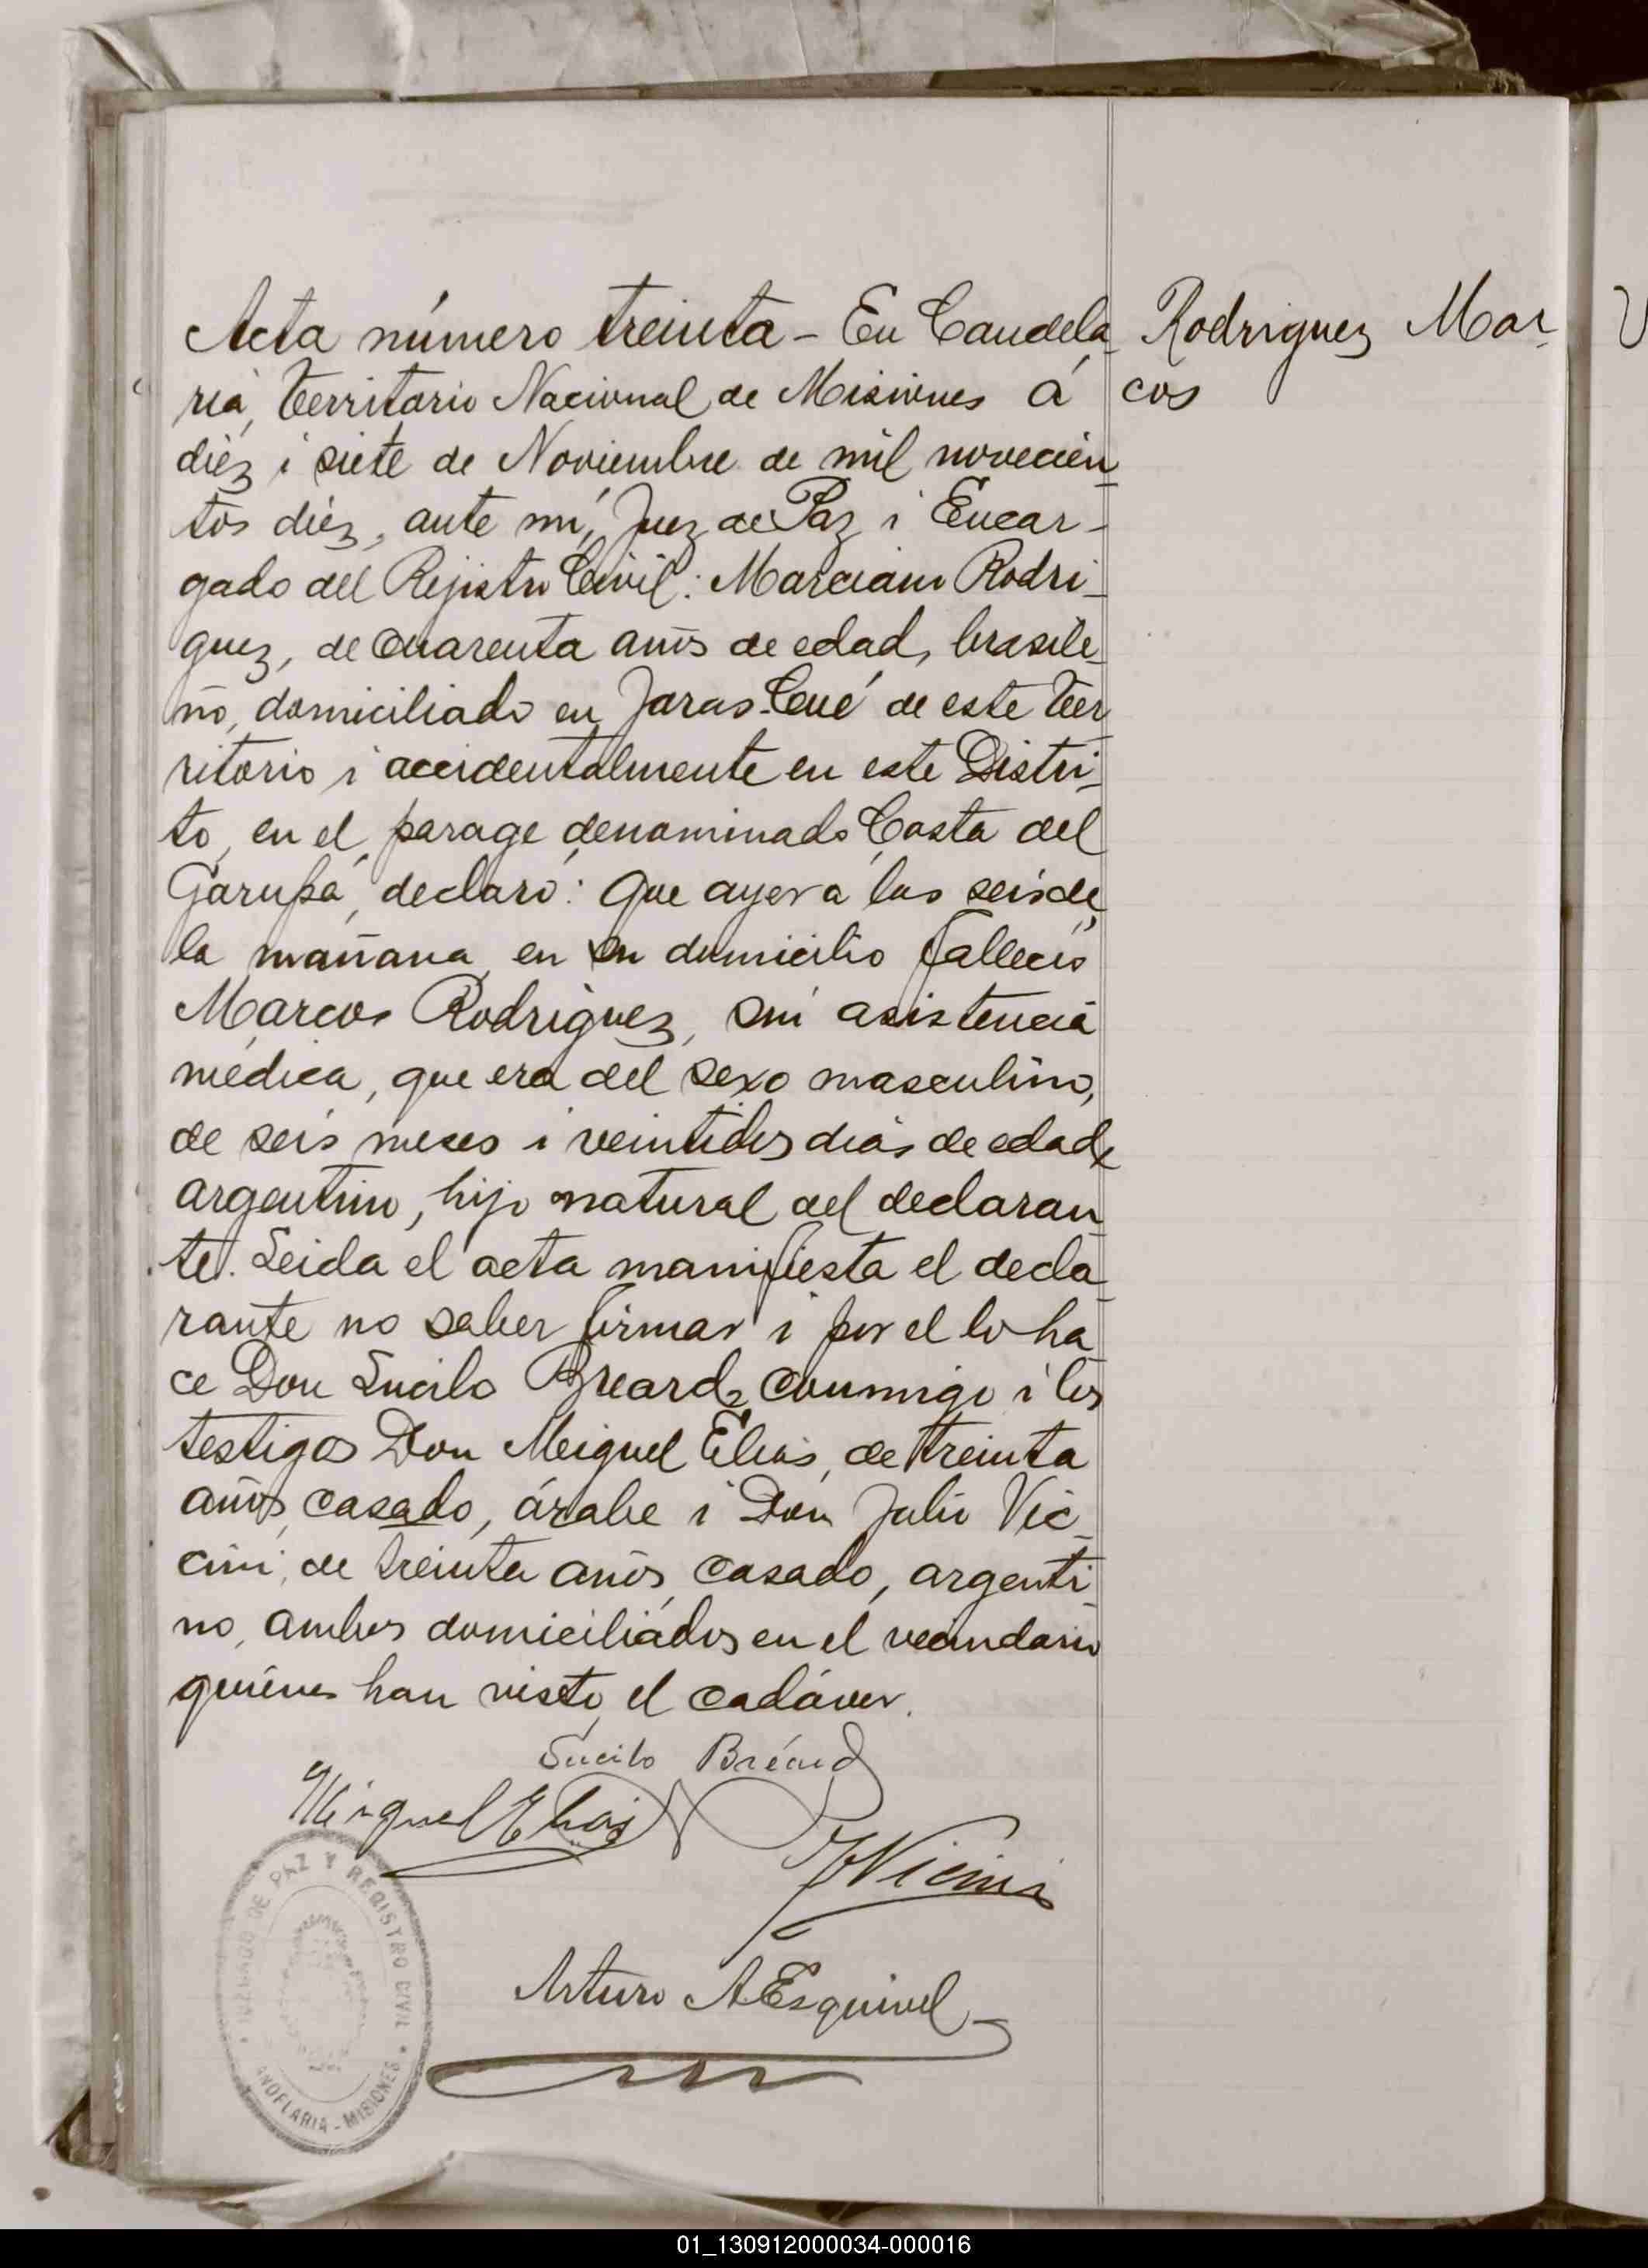 Acta número treinta - En Candela
ria, territorio Nacional de Misiones á
diez i siete de Noviembre de mil novecien
tos diez, ante mí, Juez de Paz i Encar-
gado del Rejistro Civil: Marciano Rodri
guez, de cuarenta años de edad, brasile
ño, domiciliado en Jaras-Cué de este ter
ritorio i accidentalmente en este Distri
to, en el parage denominado Costa del
Garupá, declaró: Que ayer a las seis de
la mañana en su domicilio falleció
Marcos Rodriguez, sin asistencia
médica, que era del sexo masculino,
de seis meses i veintidos dias de edad,
argentino, hijo natural del declaran
te. Leida el acta manifiesta el decla
rante no saber firmar i por el lo ha
ce Don Lucilo Breard, conmigo i los
testigos Don Meiguel Elias, de treinta
años, casado, árabe i Don Julio Vic
cini, de treinta años, casado, argenti
no, ambos domiciliados en el vecindario
quienes han visto el cadáver.
Lucilo Bréard
Miguel Elias
J Vicini
Arturo A. Esquivel
Rodriguez Mar
cos
JUZGADO DE PAZ Y REGISTRO CIVIL
CANDELARIA - MISIONES
01_130912000034-000016